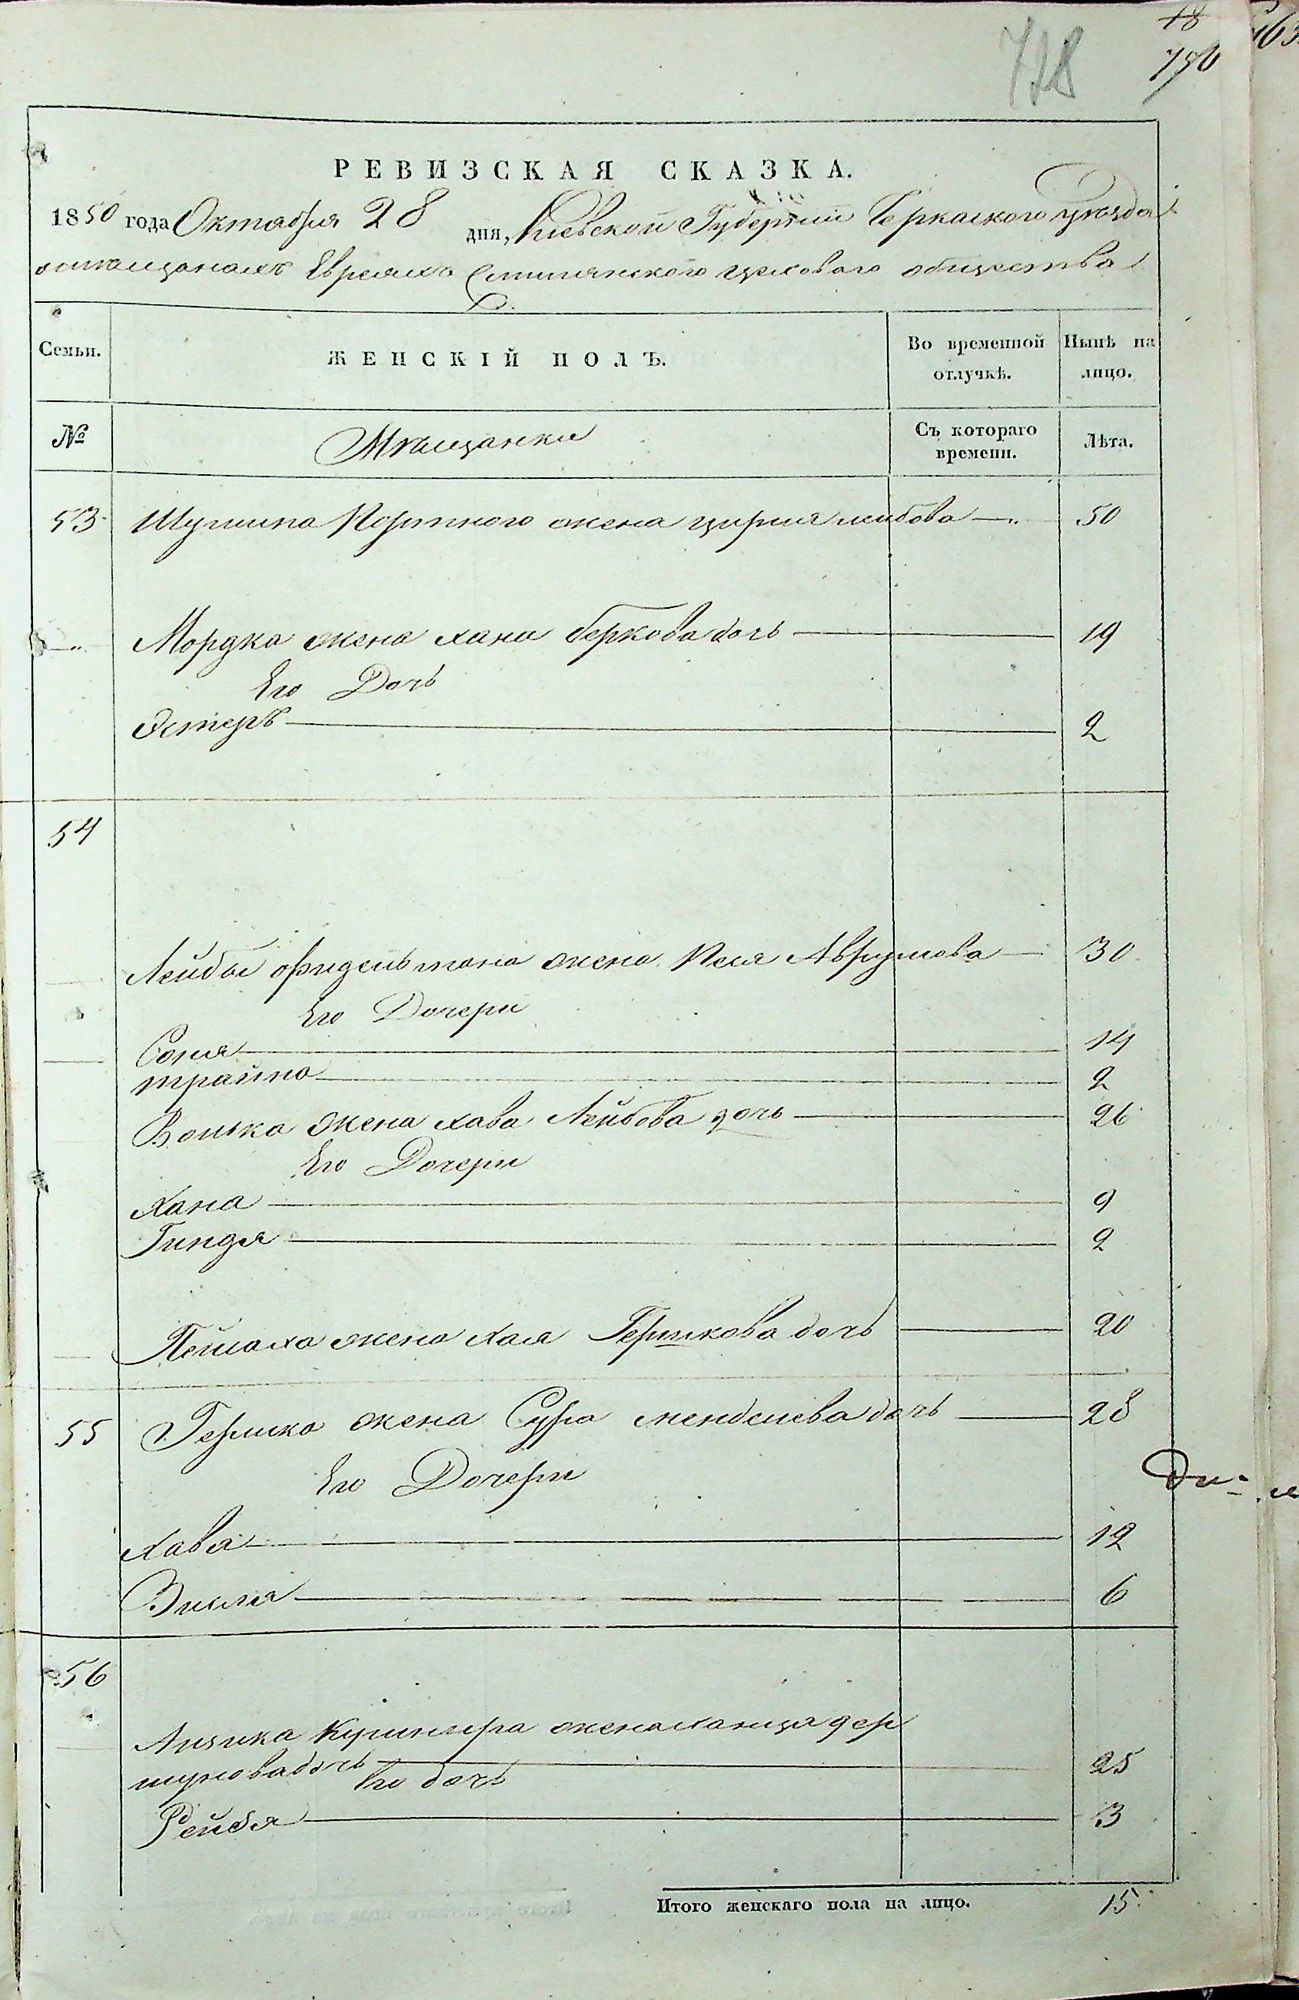 18
738
750
РЕВИЗСКАЯ СКАЗКА.
1850 года Октября 28 дня, Киевской Губернии Черкаского уезда
о мещанахъ Евреяхъ Смилянского цехового общества
Семьи.
ЖЕНСКІЙ ПОЛЪ.
Во временной отлучкѣ.
Нынѣ на лицо.
№
Мѣщанки
Съ котораго времени.
Лѣта.
53 Шулима Портного жена Цирля лейбова 50
Мордка жена хана беркова дочь 19
Его Дочь
Эстеръ 2
54
Лейбы фридельмана жена Песя Аврумова 30
Его Дочери
Соня 14
трайна 2
Волька жена хава Лейбова дочь 26
Его Дочери
Хана 9
Гиндя 2
Пейсаха жена хая Гершкова дочь 20
55 Гершко жена Сура менделева дочь 28
Его Дочери
хава 12
Зисля 6
56
Айзика жена дер
шунова дочь 25
Его дочь
Рейзя 3
Итого женскаго пола на лицо. 15.